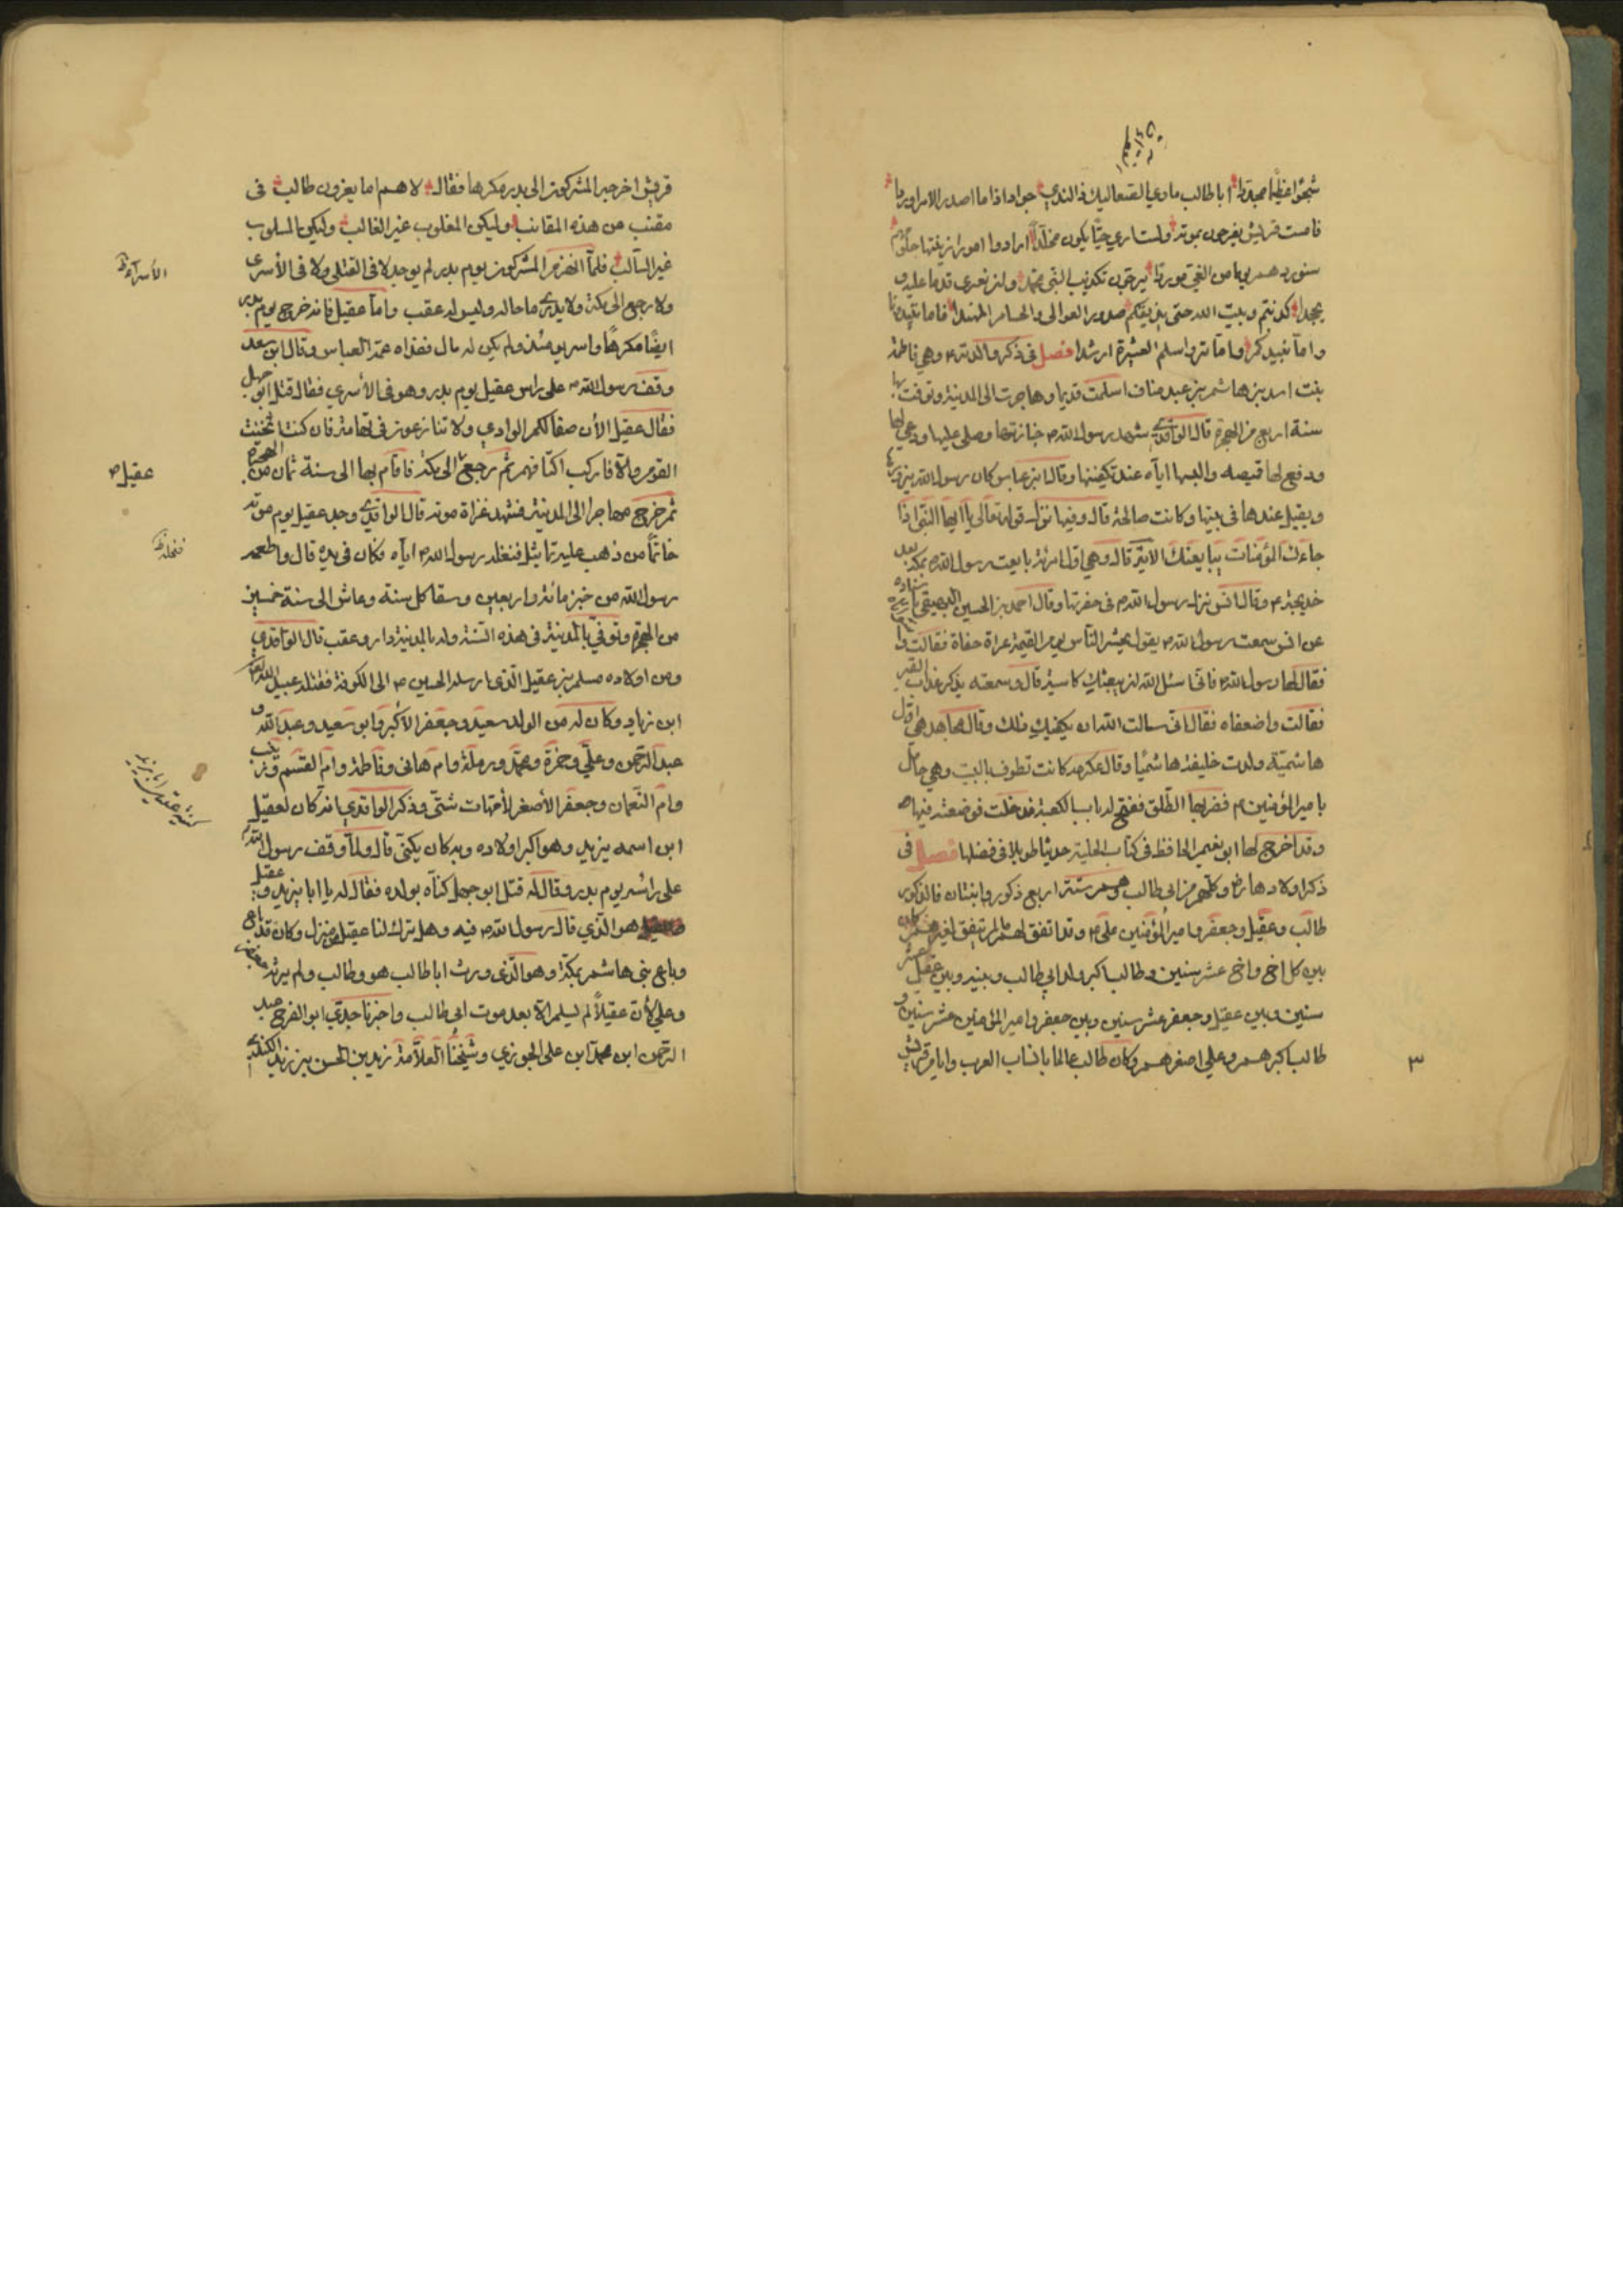 شجوا عظيما مجددا ابا طالب ماوي الصعاليك ذا الندي جوادا اذا ما اصدر الامر اوردا
فامست قريش يفرحون بموته ولست اري حيا يكون مخلدا ارادوا امورا زينتها حلومهم
ستوردهم يوما من الغي موردا يرجون تكذيب النبي محمد وان يفتري قدما عليه و
يجحدا كذبتم وبيت الله حتى نذيقكم صدور العوالي والحسام المهندا فاما تبيدونا
واما نبيدكم واما تروا سلم العشيرة ارشدا فصل فى ذكر والدته وهي فاطمة
بنت اسد بن هاشم بن عبد مناف اسلمت قديما وهاجرت الى المدينة وتوفت بها
سنة اربع من الهجرة قال الواقدي شهد رسول الله جنازتها وصلى عليها ودعي لها
ودفع لها قميصه والبسها اياه عند تكفينها وقال ابن عباس كان رسول الله يزورها
ويقيل عندها فى بيتها وكانت صالحة قال وفيها نزل قوله تعالى يا ايها النبي اذا
جاءك المؤمنات يبايعنك الاية قال وهي اول امرئة بايعت رسول الله بمكة بعد
خديجة وقال انس نزل رسول الله فى حفرتها وقال احمد بن الحسين البيهقي باسناده
عن انس سمعت رسول الله يقول يحشر الناس يوم القيمة عراة حفاة فقالت وا
فقال لها رسول الله فاني اسئل الله ان يبعثك كاسية قال وسمعته يذكر عذاب القبر
فقالت واضعفاه فقال اني سالت الله ان يكفيك ذلك وقال مجاهد هي اول
هاشمية ولدت خليفة هاشميا وقال عكرمة كانت تطوف بالبيت وهي حامل
بامير المؤمنين فضربها الطلق ففتح له باب الكعبة فدخلت فوضعته فيها
وقد اخرج لها ابو نعيم الحافظ فى كتاب الحلية حديثا طويلا فى فضلها فصل فى
ذكر اولادها وكلهم من ابي طالب وهم ستة اربع ذكور وابنتان فالذكور
طالب وعقيل وجعفر وامير المؤمنين علي وقد اتفق لهم ما لم يتفق لغيرهم كان
بين كل اخ واخ عشر سنين وطالب اكبر ولد ابي طالب وبينه وبين عقيل عشر
سنين وبين عقيل وجعفر عشر سنين وبين جعفر وامير المؤمنين عشر سنين و
طالب اكبرهم وعلي اصغرهم وكان طالب عالما بانساب العرب وايام قريش
٣
قريش اخرجه المشركون الى بدر مكرها فقال لاهم اما يغزون طالب فى
مقنب من هذه المقانب وليكن المغلوب غير الغالب وليكن المسلوب
غير السالب فلما انهزم المشركون يوم بدر لم يوجد لا فى القتلى ولا فى الأسرى
ولا رجع الى مكة ولا يدري ما حاله وليس له عقب واما عقيل فانه خرج يوم بدر
ايضا مكرها واسر يومئذ ولم يكن له مال ففداه عمه العباس وقال ابن سعد
وقف رسول الله على راس عقيل يوم بدر وهو فى الأسري فقال قتل ابو جهل
فقال عقيل الأن صفا لكم الوادي ولا تنازعون فى تهامة فان كنت اثخنت
القوم والا فاركب اكتافهم ثم رجع الى مكة فاقام بها الى سنة ثمان من الهجرة
ثم خرج مهاجرا الى المدينة فشهد غزاة موته قال الواقدي وجد عقيل يوم موته
خاتما من ذهب عليه تماثيل فنفله رسول الله اياه فكان فى يده قال واطعمه
رسول الله من خيبر مائة واربعين وسقا كل سنة وعاش الى سنة خمسين
من الهجرة وتوفي بالمدينة فى هذه السنة وله بالمدينة دار وعقب قال الواقدي
ومن اولاده مسلم بن عقيل الذى ارسله الحسين الى الكوفة فقتله عبيد الله
ابن زياد وكان له من الولد سعيد وجعفر الأكبر وابو سعيد وعبد الله و
عبد الرحمن وعلي وحمزة ومحمد ورملة وام هانى وفاطمة وام القسم وزينب
وام النعمان وجعفر الأصغر لأمهات شتى وذكر الواقدي انه كان لعقيل
ابن اسمه يزيد وهو اكبر اولاده وبه كان يكنى قال ولما وقف رسول الله
على رأسه يوم بدر وقال له قتل ابو جهل كناه بولده فقال له يا ابا يزيد و عقيل
هو الذي قال رسول الله فيه وهل ترك لنا عقيل من منزل وكان قد باع
وباع بنى هاشم بمكة وهو الذى ورث ابا طالب هو وطالب ولم يرثه جعفر
وعلي لأن عقيلا لم يسلم الا بعد موت ابى طالب واخبرنا جدي ابو الفرج عبد
الرحمن ابن محمد ابن على الجوزي وشيخنا العلامة زيد بن الحسن بن زيد الكندي
الأسراء
عقيل
فنفله
كنية عقيل ابا يزيد